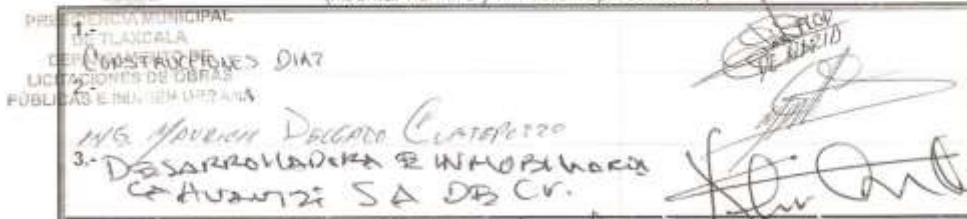 PRESIDENCIA MUNICIPAL
DE TLAXCALA
DEPARTAMENTO DE
LICITACIONES DE OBRAS
PÚBLICAS E IMAGEN URBANA
1.-
CONSTRUCCIONES DIAZ
2.-
ING. MAURICIO DELGADO CUATEPOTZO
3.- DESARROLLADORA E INMOBILIARIA
CAHUANTZI SA DE CV.
FLOR
DE MARIA